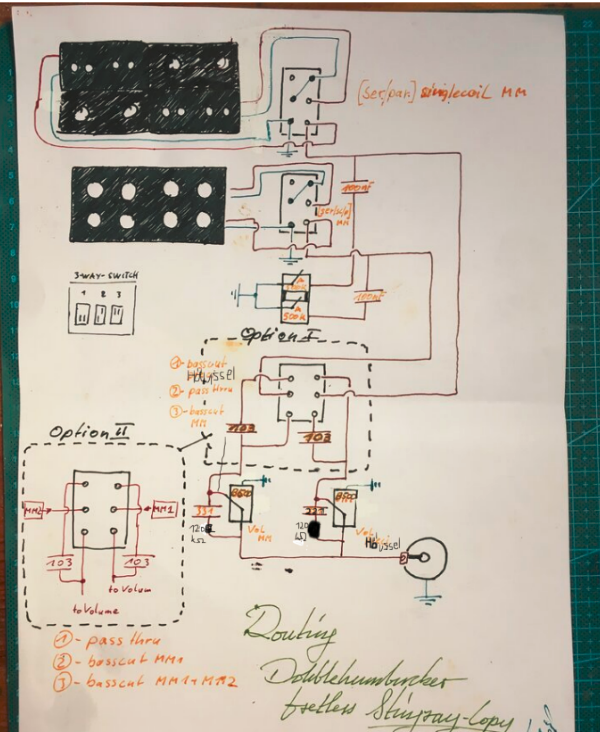 [ser/par] singlecoil MM
100nF
[ser/par]
MM
3-WAY-SWITCH
1 2 3
A
500k
100nF
Option I
①-basscut
Häussel
②-pass thru
③-basscut
MM
103
103
Option II
MM2
MM1
103
103
to Volume
to Volum
331
120
kΩ
Vol
MM
331
120
kΩ
Vol
Häussel
①-pass thru
②-basscut MM1
③-basscut MM1+MM2
Routing
Doublehumbucker
fretless Stingray-Copy